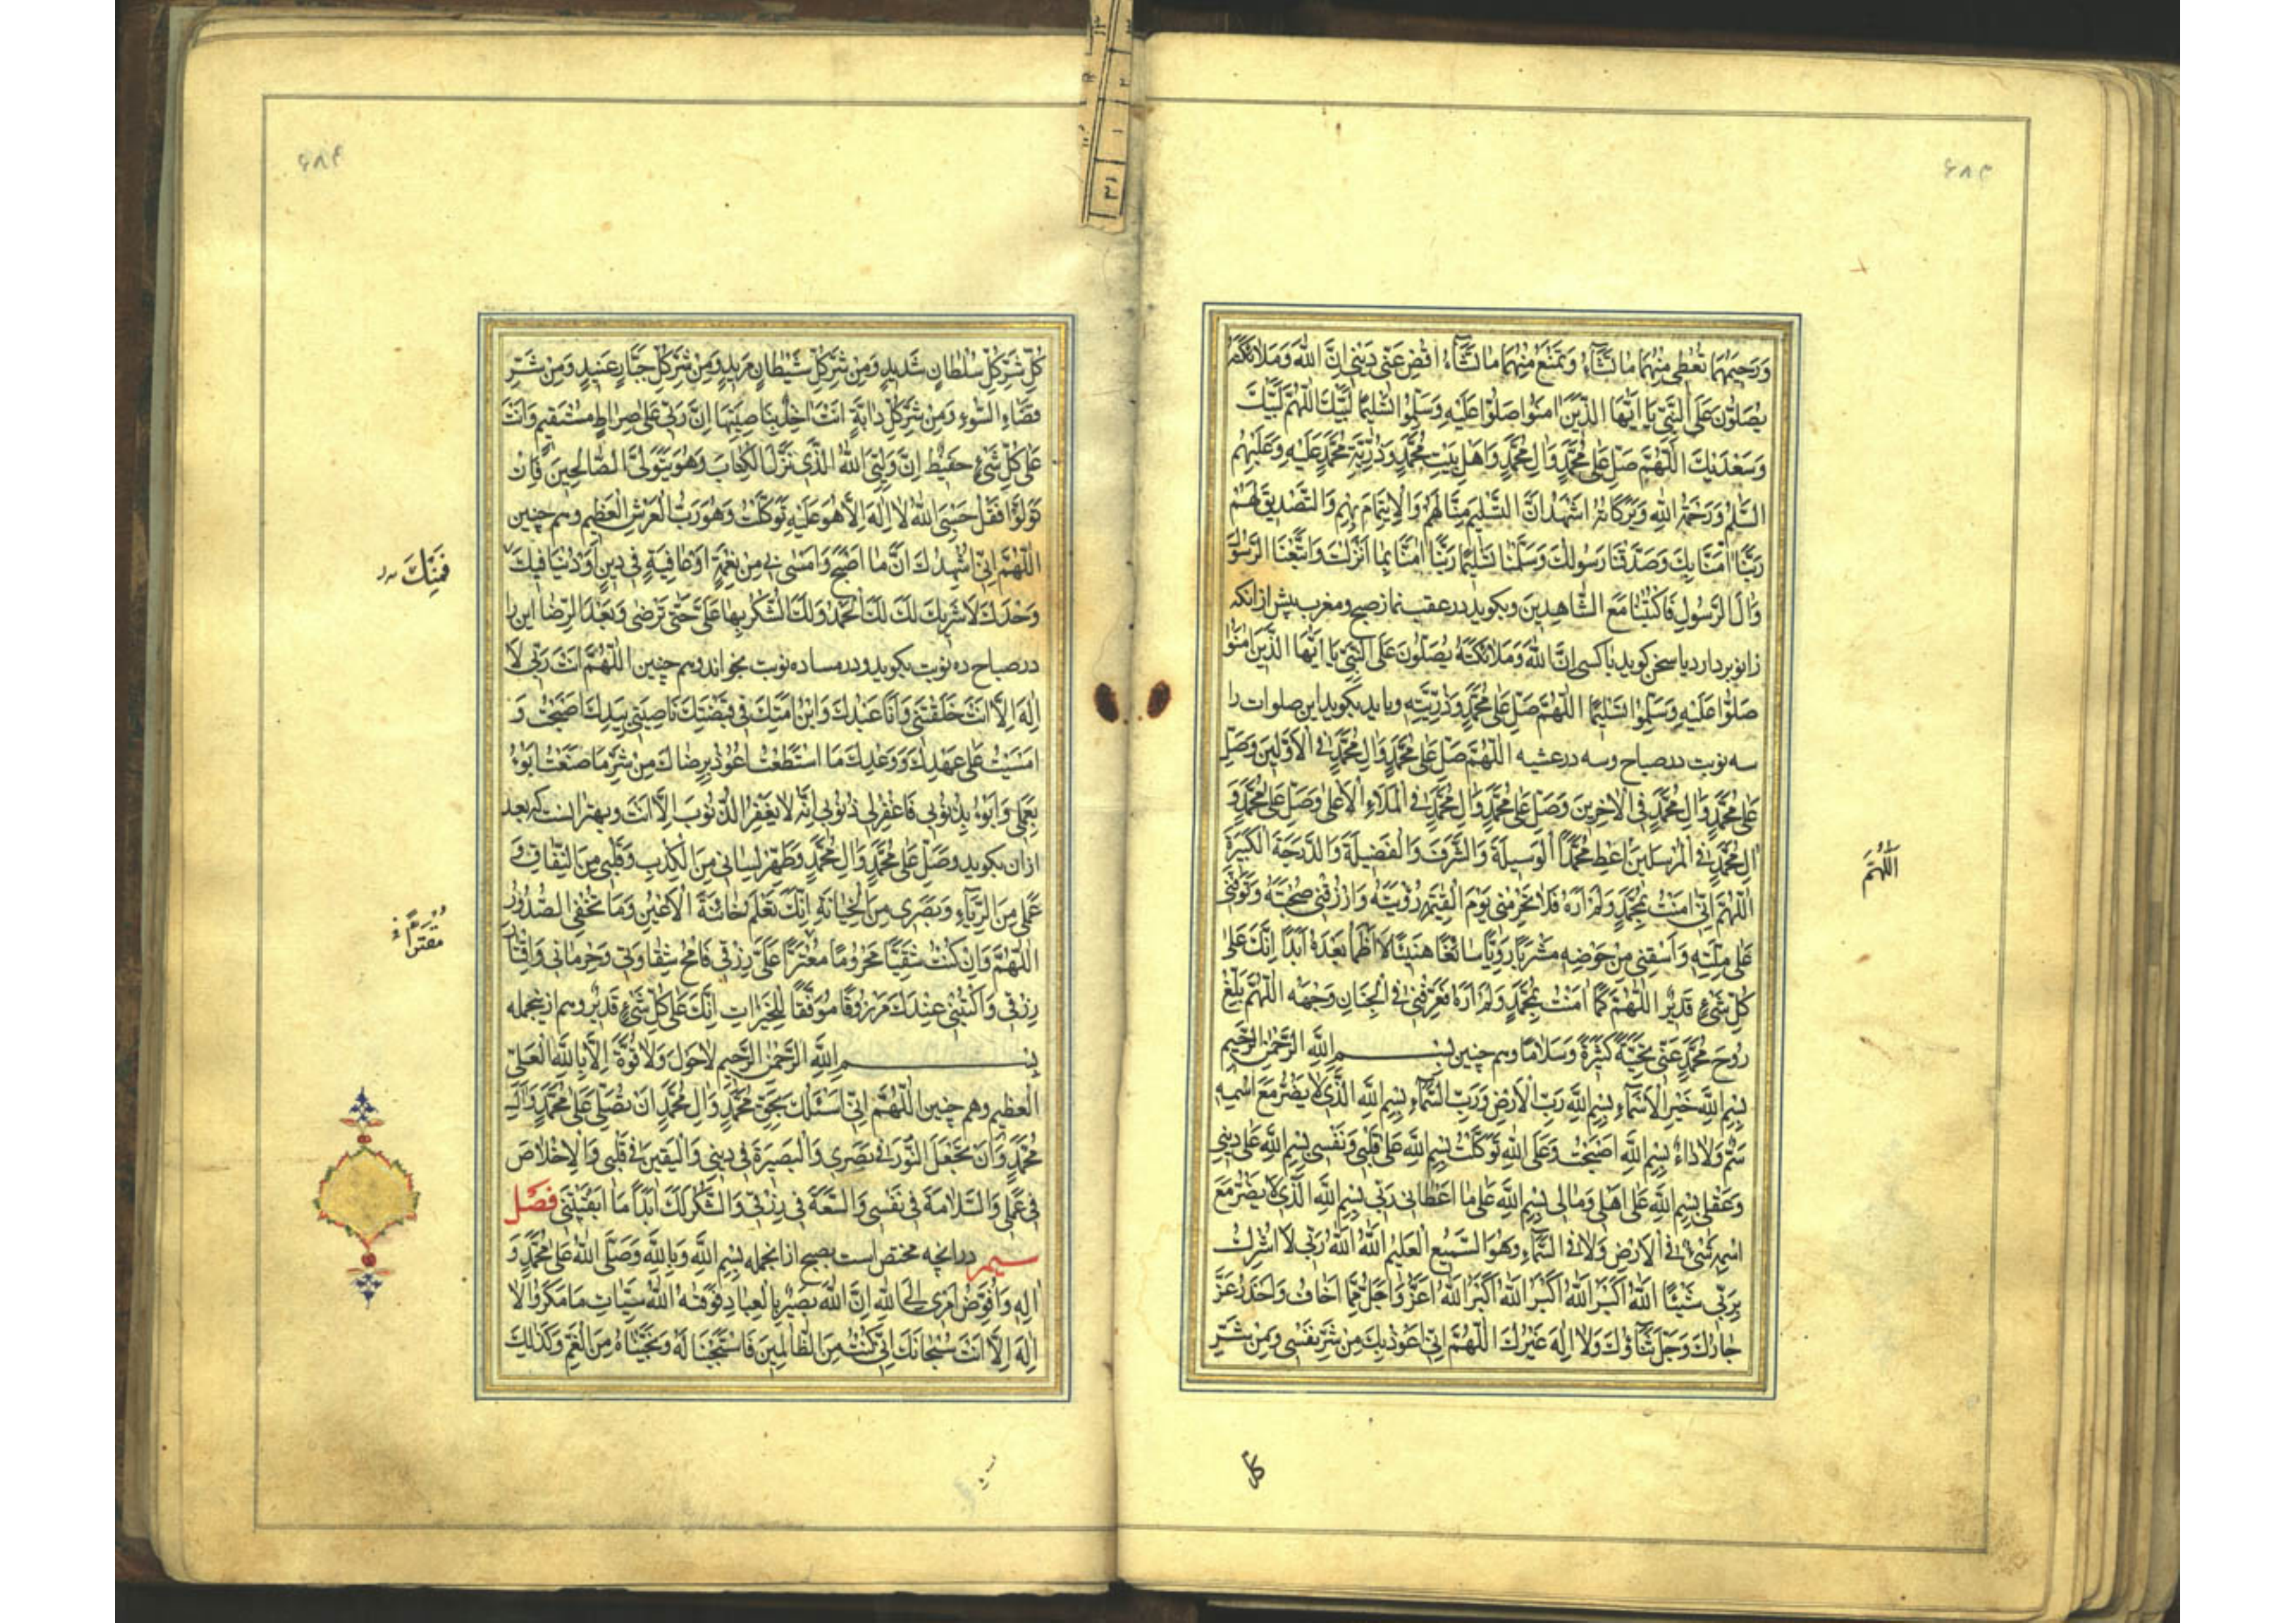 ۶۸۳
وَرَحیمَهُما تُعْطی مِنْهُما ما تَشآءُ وَتَمْنَعُ مِنْهُما ما تَشآءُ اقْضِ عَنّی دَیْنی اِنَّ اللهَ وَمَلآئِکَتَهُ
یُصَلّوُنَ عَلَی النَّبیِّ یا اَیُّهَا الَّذینَ امَنوُا صَلّوُا عَلَیْهِ وَسَلِّموُا تَسْلیمًا لَبَّیْکَ اللّهُمَّ لَبَّیْکَ
وَسَعْدَیْکَ اللّهُمَّ صَلِّ عَلی مُحَمَّدٍ وَالِ مُحَمَّدٍ وَاَهْلِ بَیْتِ مُحَمَّدٍ وَذُرِّیَّةِ مُحَمَّدٍ عَلَیْهِ وَعَلَیْهِمُ
السَّلمُ وَرَحْمَةُ اللهِ وَبَرَکاتُهُ اَشْهَدُ اَنَّ التَّسْلیمَ مِنّا لَهُمْ وَالْاِیتِمامَ بِهِمْ وَالتَّصْدیقَ لَهُمْ
رَبَّنا امَنّا بِکَ وَصَدَّقْنا رَسوُلَکَ وَسَلَّمْنا تَسْلیمًا رَبَّنا امَنّا بِما اَنْزَلْتَ وَاتَّبَعْنَا الرَّسوُلَ
وَالَ الرَّسوُلِ فَاکْتُبْنا مَعَ الشّاهِدینَ وبکوید در عقب نماز صبح ومغرب پیش از انکه
زانو بردارد یا سخن کوید با کسی اِنَّ اللهَ وَمَلآئِکَتَهُ یُصَلّوُنَ عَلَی النَّبیِّ یا اَیُّهَا الَّذینَ امَنوُا
صَلّوُا عَلَیْهِ وَسَلِّموُا تَسْلیمًا اللّهُمَّ صَلِّ عَلی مُحَمَّدٍ وَذُرِّیَّتِهِ وباید بکوید این صلوات را
سه نوبت در صباح وسه در عشیه اللّهُمَّ صَلِّ عَلی مُحَمَّدٍ وَالِ مُحَمَّدٍ فِی الْاَوَّلینَ وَصَلِّ
عَلی مُحَمَّدٍ وَالِ مُحَمَّدٍ فِی الْاخِرینَ وَصَلِّ عَلی مُحَمَّدٍ وَالِ مُحَمَّدٍ فِی الْمَلَاءِ الْاَعْلی وَصَلِّ عَلی مُحَمَّدٍ وَ
الِ مُحَمَّدٍ فِی الْمُرْسَلینَ اَعْطِ مُحَمَّدًا الْوَسیلَةَ وَالشَّرَفَ وَالْفَضیلَةَ وَالدَّرَجَةَ الْکَبیرَةَ
اللّهُمَّ
اللّهُمَّ اِنّی امَنْتُ بِمُحَمَّدٍ وَلَمْ اَرَهُ فَلا تَحْرِمْنی یَوْمَ الْقِیمَةِ رُؤْیَتَهُ وَارْزُقْنی صُحْبَتَهُ وَتَوَفَّنی
عَلی مِلَّتِهِ وَاسْقِنی مِنْ حَوْضِهِ مَشْرَبًا رَوِیًّا سائِغًا هَنیئًا لا اَظْمَأُ بَعْدَهُ اَبَدًا اِنَّکَ عَلی
کُلِّ شَیْءٍ قَدیرٌ اللّهُمَّ کَما امَنْتُ بِمُحَمَّدٍ وَلَمْ اَرَهُ فَعَرِّفْنی فِی الْجِنانِ وَجْهَهُ اللّهُمَّ بَلِّغْ
روُحَ مُحَمَّدٍ عَنّی تَحِیَّةً کَثیرَةً وَسَلامًا وهم چنین بِسْمِ اللهِ الرَّحْمنِ الرَّحیمِ
بِسْمِ اللهِ خَیْرِ الْاَسْمآءِ بِسْمِ اللهِ رَبِّ الْاَرْضِ وَرَبِّ السَّمآءِ بِسْمِ اللهِ الَّذی لا یَضُرُّ مَعَ اسْمِهِ
سَمٌّ وَلا داءٌ بِسْمِ اللهِ اَصْبَحْتُ وَعَلَی اللهِ تَوَکَّلْتُ بِسْمِ اللهِ عَلی قَلْبی وَنَفْسی بِسْمِ اللهِ عَلی دینی
وَعَقْلی بِسْمِ اللهِ عَلی اَهْلی وَمالی بِسْمِ اللهِ عَلی ما اَعْطانی رَبّی بِسْمِ اللهِ الَّذی لا یَضُرُّ مَعَ
اسْمِهِ شَیْءٌ فِی الْاَرْضِ وَلا فِی السَّمآءِ وَهُوَ السَّمیعُ الْعَلیمُ اللهُ اللهُ رَبّی لا اُشْرِکُ
بِرَبّی شَیْئًا اللهُ اَکْبَرُ اللهُ اَکْبَرُ اللهُ اَکْبَرُ اللهُ اَعَزُّ وَاَجَلُّ مِمّا اَخافُ وَاَحْذَرُ عَزَّ
جارُکَ وَجَلَّ ثَنآؤُکَ وَلا اِلهَ غَیْرُکَ اللّهُمَّ اِنّی اَعوُذُ بِکَ مِنْ شَرِّ نَفْسی وَمِنْ شَرِّ
کل
۶۸۴
کُلِّ شَرِّ کُلِّ سُلْطانٍ شَدیدٍ وَمِنْ شَرِّ کُلِّ شَیْطانٍ مَریدٍ وَمِنْ شَرِّ کُلِّ جَبّارٍ عَنیدٍ وَمِنْ شَرِّ
قَضآءِ السّوُءِ وَمِنْ شَرِّ کُلِّ دابَّةٍ اَنْتَ اخِذٌ بِناصِیَتِها اِنَّ رَبّی عَلی صِراطٍ مُسْتَقیمٍ وَاَنْتَ
عَلی کُلِّ شَیْءٍ حَفیظٌ اِنَّ وَلِیِّیَ اللهُ الَّذی نَزَّلَ الْکِتابَ وَهُوَ یَتَوَلَّی الصّالِحینَ فَاِنْ
تَوَلَّوْا فَقُلْ حَسْبِیَ اللهُ لا اِلهَ اِلاّ هُوَ عَلَیْهِ تَوَکَّلْتُ وَهُوَ رَبُّ الْعَرْشِ الْعَظیمِ وهم چنین
فَمِنْکَ
اللّهُمَّ اِنّی اُشْهِدُکَ اَنَّ ما اَصْبَحَ وَاَمْسی بی مِنْ نِعْمَةٍ اَوْ عافِیَةٍ فی دینٍ اَوْ دُنْیا فیکَ
وَحْدَکَ لا شَریکَ لَکَ لَکَ الْحَمْدُ وَلَکَ الشُّکْرُ بِها عَلَیَّ حَتّی تَرْضی وَبَعْدَ الرِّضا این را
در صباح ده نوبت بکوید ودر مسا ده نوبت بخواند وهم چنین اللّهُمَّ اَنْتَ رَبّی لا
اِلهَ اِلاّ اَنْتَ خَلَقْتَنی وَاَنَا عَبْدُکَ وَابْنُ اَمَتِکَ فی قَبْضَتِکَ ناصِیَتی بِیَدِکَ اَصْبَحْتُ وَ
اَمْسَیْتُ عَلی عَهْدِکَ وَوَعْدِکَ مَا اسْتَطَعْتُ اَعوُذُ بِرِضاکَ مِنْ شَرِّ ما صَنَعْتُ اَبوُءُ
بِعَمَلی وَاَبوُءُ بِذُنوُبی فَاغْفِرْ لی ذُنوُبی اِنَّهُ لا یَغْفِرُ الذُّنوُبَ اِلاّ اَنْتَ وبهتر انست که بعد
از ان بکوید وَصَلِّ عَلی مُحَمَّدٍ وَالِ مُحَمَّدٍ وَطَهِّرْ لِسانی مِنَ الْکِذْبِ وَقَلْبی مِنَ النِّفاقِ وَ
عَمَلی مِنَ الرِّیآءِ وَبَصَری مِنَ الْخِیانَةِ اِنَّکَ تَعْلَمُ خائِنَةَ الْاَعْیُنِ وَما تُخْفِی الصُّدوُرُ
مُقَتَّرًا
اللّهُمَّ وَاِنْ کُنْتُ شَقِیًّا مَحْروُمًا مُقْتَرًا عَلَیَّ رِزْقی فَامْحُ شِقاوَتی وَحِرْمانی وَاِقْتارَ
رِزْقی وَاکْتُبْنی عِنْدَکَ مَرْزوُقًا مُوَفَّقًا لِلْخَیْراتِ اِنَّکَ عَلی کُلِّ شَیْءٍ قَدیرٌ وهم ازینجمله
بِسْمِ اللهِ الرَّحْمنِ الرَّحیمِ لا حَوْلَ وَلا قُوَّةَ اِلاّ بِاللهِ الْعَلِیِّ
الْعَظیمِ وهم چنین اللّهُمَّ اِنّی اَسْئَلُکَ بِحَقِّ مُحَمَّدٍ وَالِ مُحَمَّدٍ اَنْ تُصَلِّیَ عَلی مُحَمَّدٍ وَالِ
مُحَمَّدٍ وَاَنْ تَجْعَلَ النّوُرَ فی بَصَری وَالْبَصیرَةَ فی دینی وَالْیَقینَ فی قَلْبی وَالْاِخْلاصَ
فی عَمَلی وَالسَّلامَةَ فی نَفْسی وَالسَّعَةَ فی رِزْقی وَالشُّکْرَ لَکَ اَبَدًا ما اَبْقَیْتَنی فصل
سیم در انچه مختص است بصبح از انجمله بِسْمِ اللهِ وَبِاللهِ وَصَلَّی اللهُ عَلی مُحَمَّدٍ وَ
الِهِ وَاُفَوِّضُ اَمْری اِلَی اللهِ اِنَّ اللهَ بَصیرٌ بِالْعِبادِ فَوَقیهُ اللهُ سَیِّئاتِ ما مَکَروُا لا
اِلهَ اِلاّ اَنْتَ سُبْحانَکَ اِنّی کُنْتُ مِنَ الظّالِمینَ فَاسْتَجَبْنا لَهُ وَنَجَّیْناهُ مِنَ الْغَمِّ وَکَذلِکَ